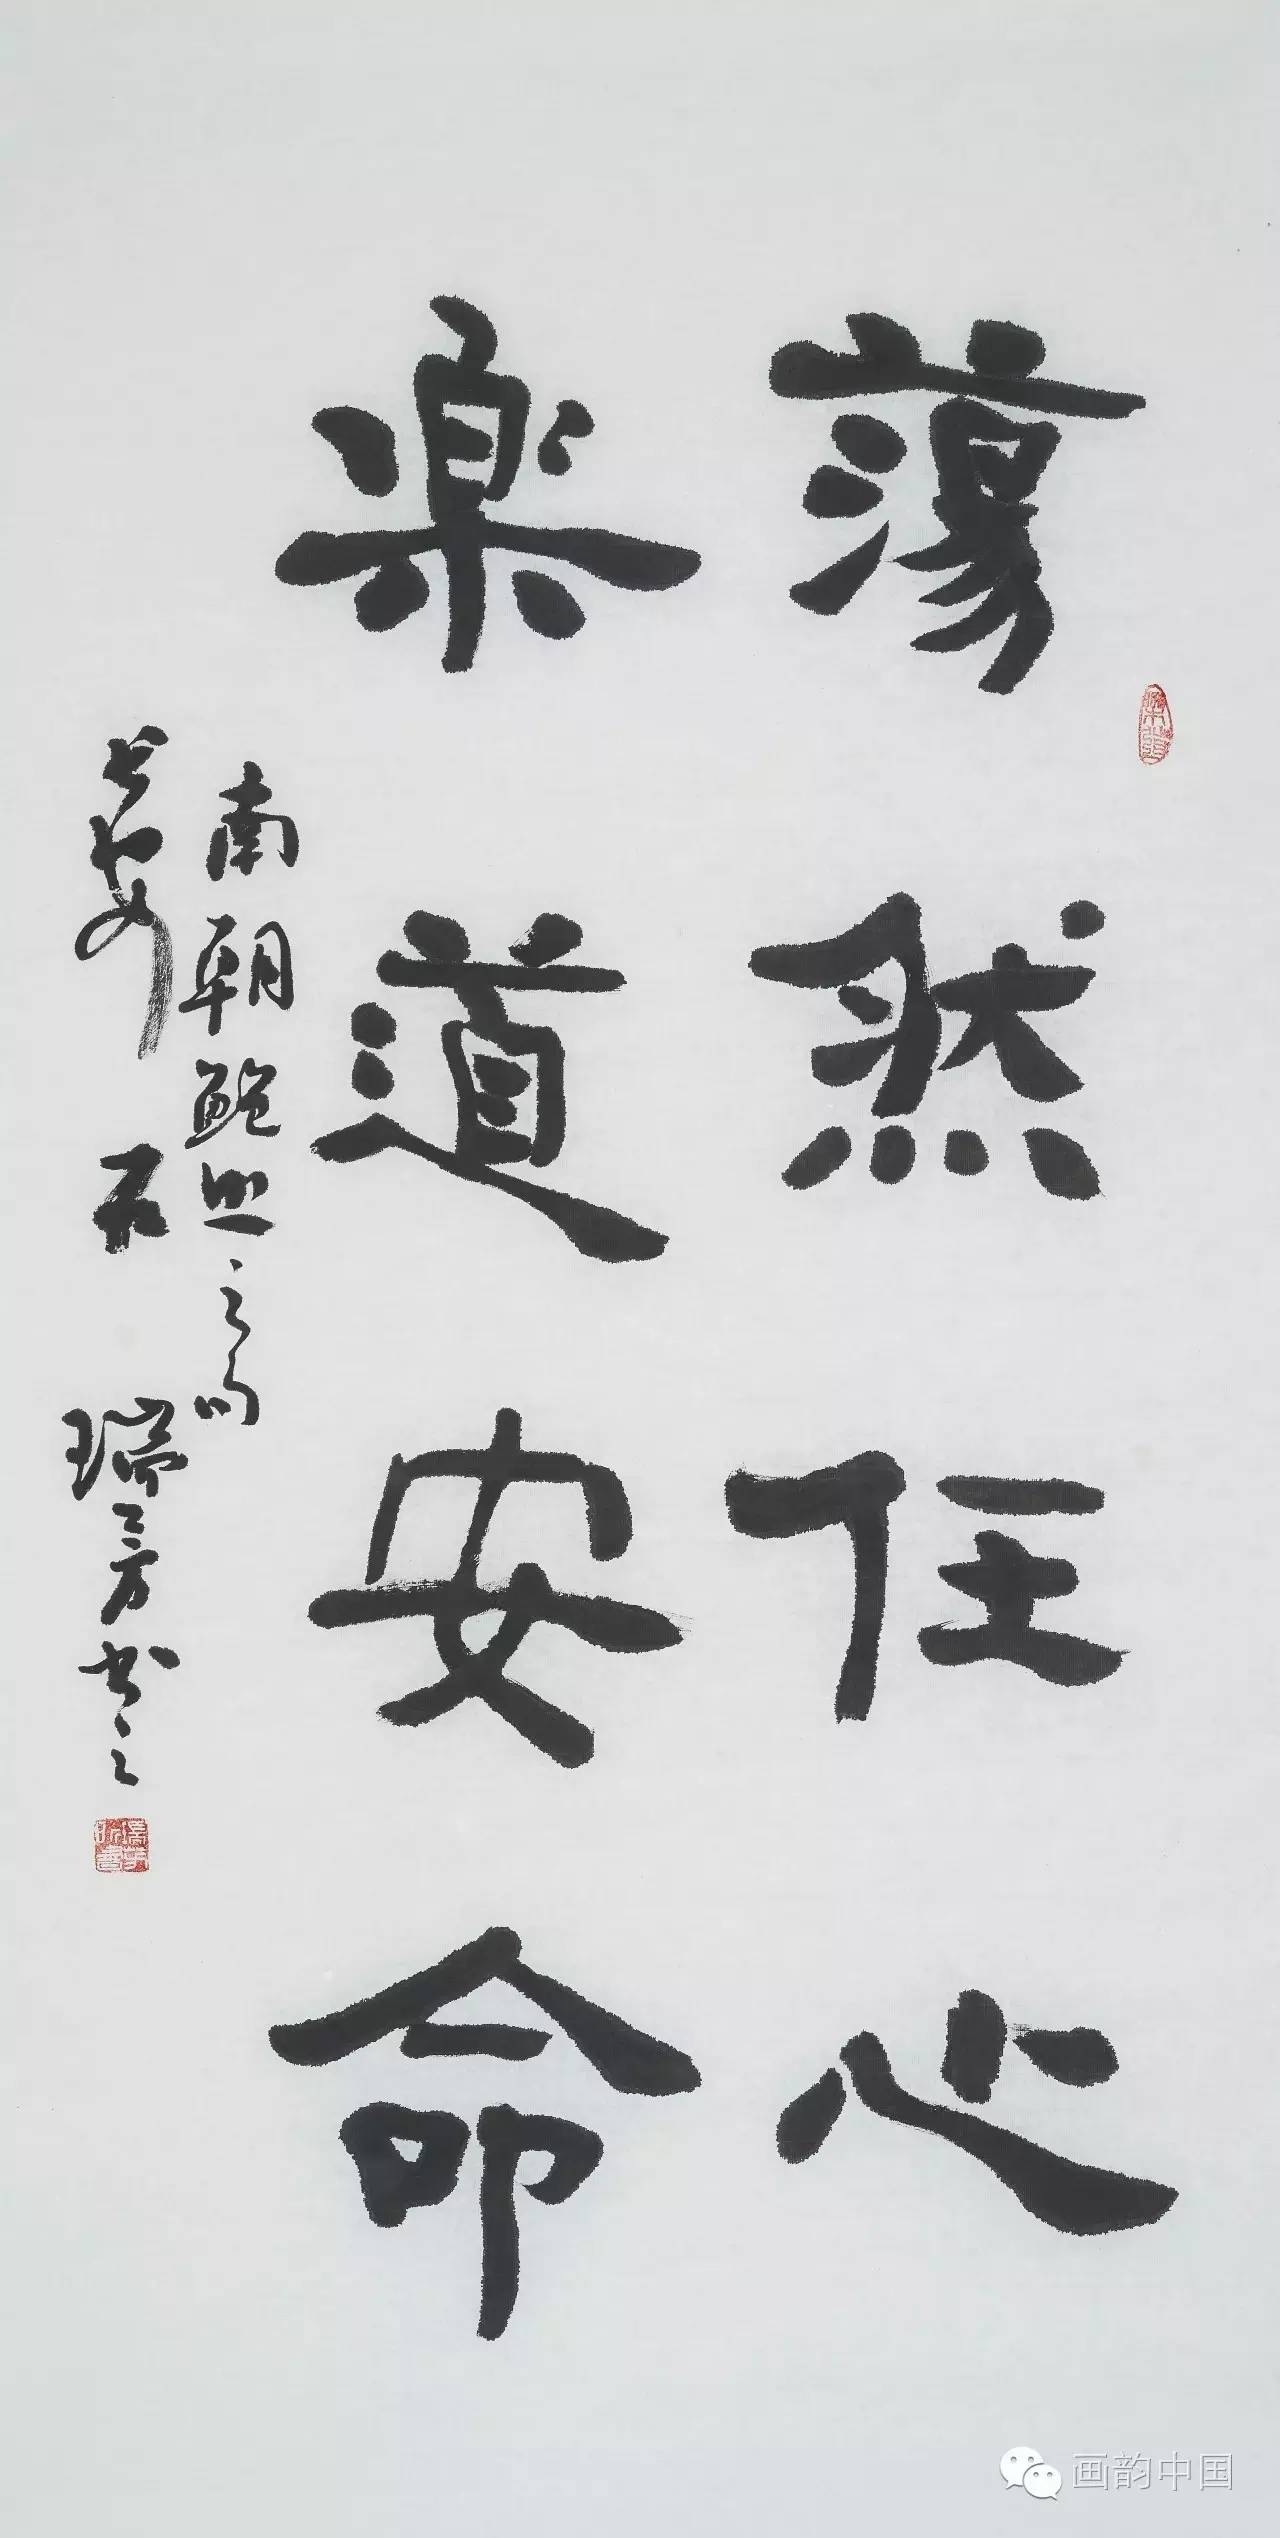 蕩然任心
楽道安命
南朝鮑照之句
長安石瑞芳书之
画韵中国